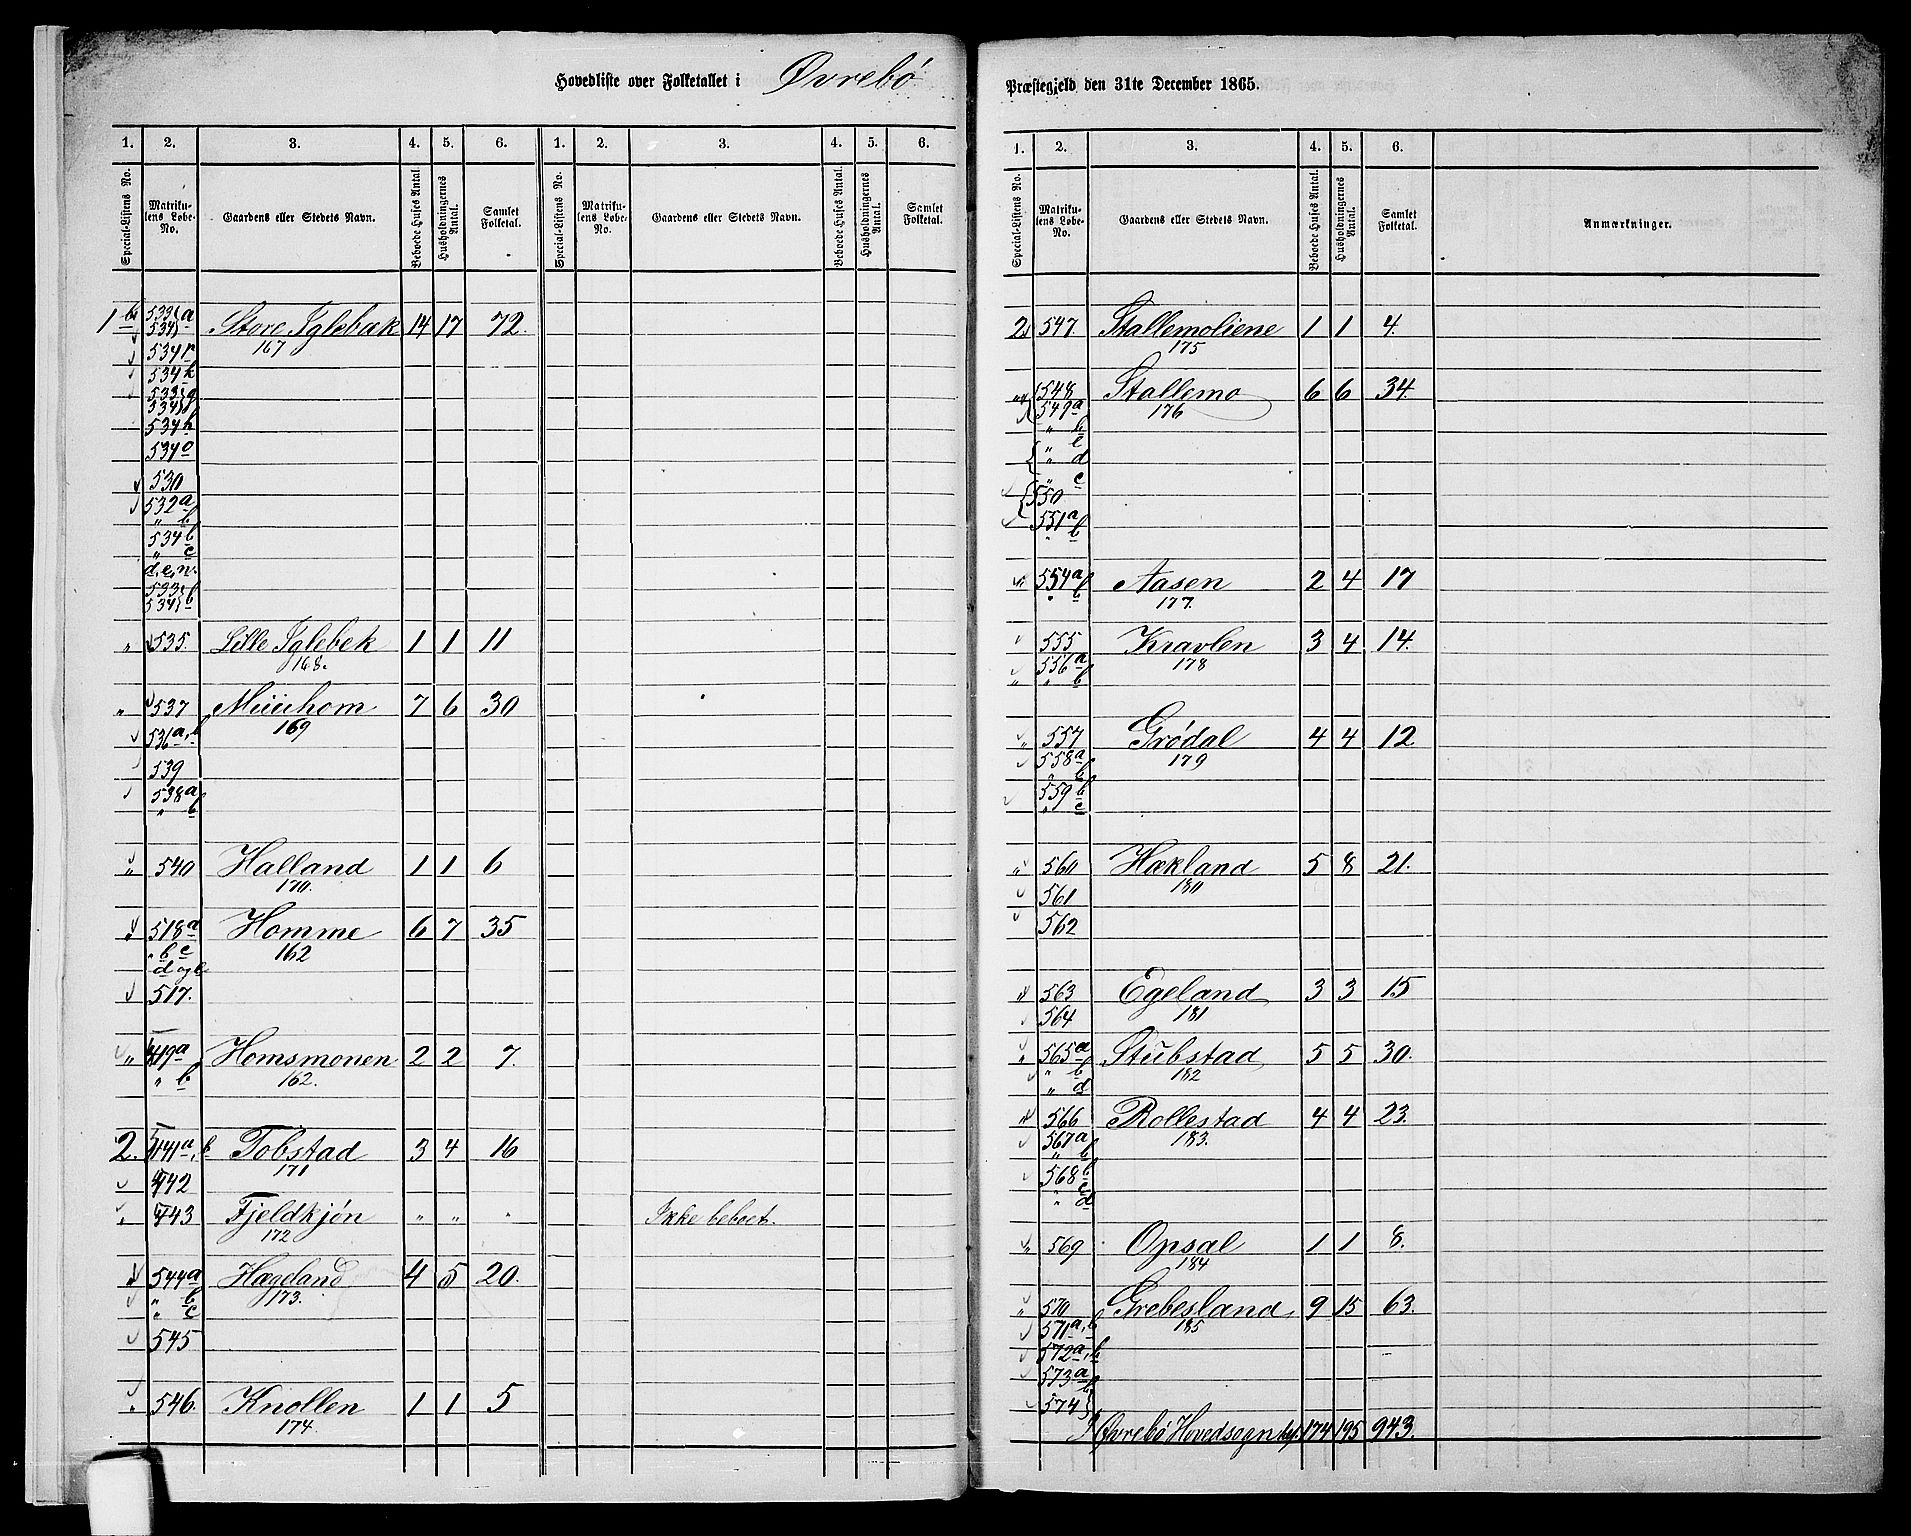 Hovedliste over Folketallet i Øvrebø
1. 2. 3. 4. 5. 6. 1. 2. 3. 4. 5. 6.
Special-Listens No. Matrikulens Løbe-No. Gaardens eller Stedets Navn. Beboede Huses Antal. Husholdningernes Antal. Samlet Folketal. Special-Listens No. Matrikulens Løbe-No. Gaardens eller Stedets Navn. Beboede Huses Antal. Husholdningernes Antal. Samlet Folketal.
1 b 533 a Store Iglebæk 14 17 72.
534
167
534
534 k
533 g
534
534 h
534 o
530
532 a
" b
534 b
" c
d, e, n.
533 f
534
" 535. Lille Iglebek 1 1 11
168.
" 537 7 6 30
169
536 a, b
539
538 a
" b
" 540 Halland 1 1 6
170.
518 a Homme 6 7 35
" b c 162
d og e
517.
" 419 a Homsmonen 2 2 7.
" b 162.
2. 541 a, b Tobstad 3 4 16
171
542
543 Fjeldkjøn " " " Ikke beboet.
172
544 a Hægeland 4 5 20.
" b 173.
" c
545
546. Knollen 1 1 5
174.
Præstegjeld den 31te December 1865.
1. 2. 3. 4. 5. 6.
Special-Listens No. Matrikulens Løbe-No. Gaardens eller Stedets Navn. Beboede Huses Antal. Husholdningernes Antal. Samlet Folketal. Anmærkninger.
2 547. Stallemoliene 1 1 4.
175
548 Stallemo 6 6 34.
549 a 176
" b
" e
" d
" c
550
551 a
" b
554 a Aasen 2 4 17
" b 177.
555 Kravlen 3 4 14.
556 a 178
" b
" 557 Grødal 4 4 12
558 a 179
b
559 b
" c
" 560 Hækland 5 8 21.
180
561
562
563 Egeland 3 3 15
564 181
" 565 a Stubstad 5 5 30.
" b 182
" d
566 Rollestad 4 4 23.
567 a 183.
" b
568 b
c
" d
" 569 Opsal 1 1 8.
184
" 570 Grebesland 9 15 63.
571 a, b 185
572 a, b
573 a
b
574
Øvrebø Hovedsogn 174 195 943.